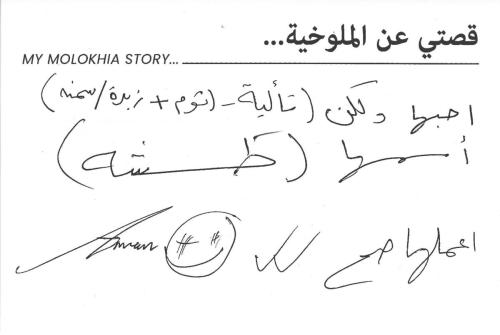 قصتي عن الملوخية...
MY MOLOKHIA STORY...
احبها ولكن (تألية - (ثوم + زبدة/سمنه)
أسمها (طشه)
اعملها صح